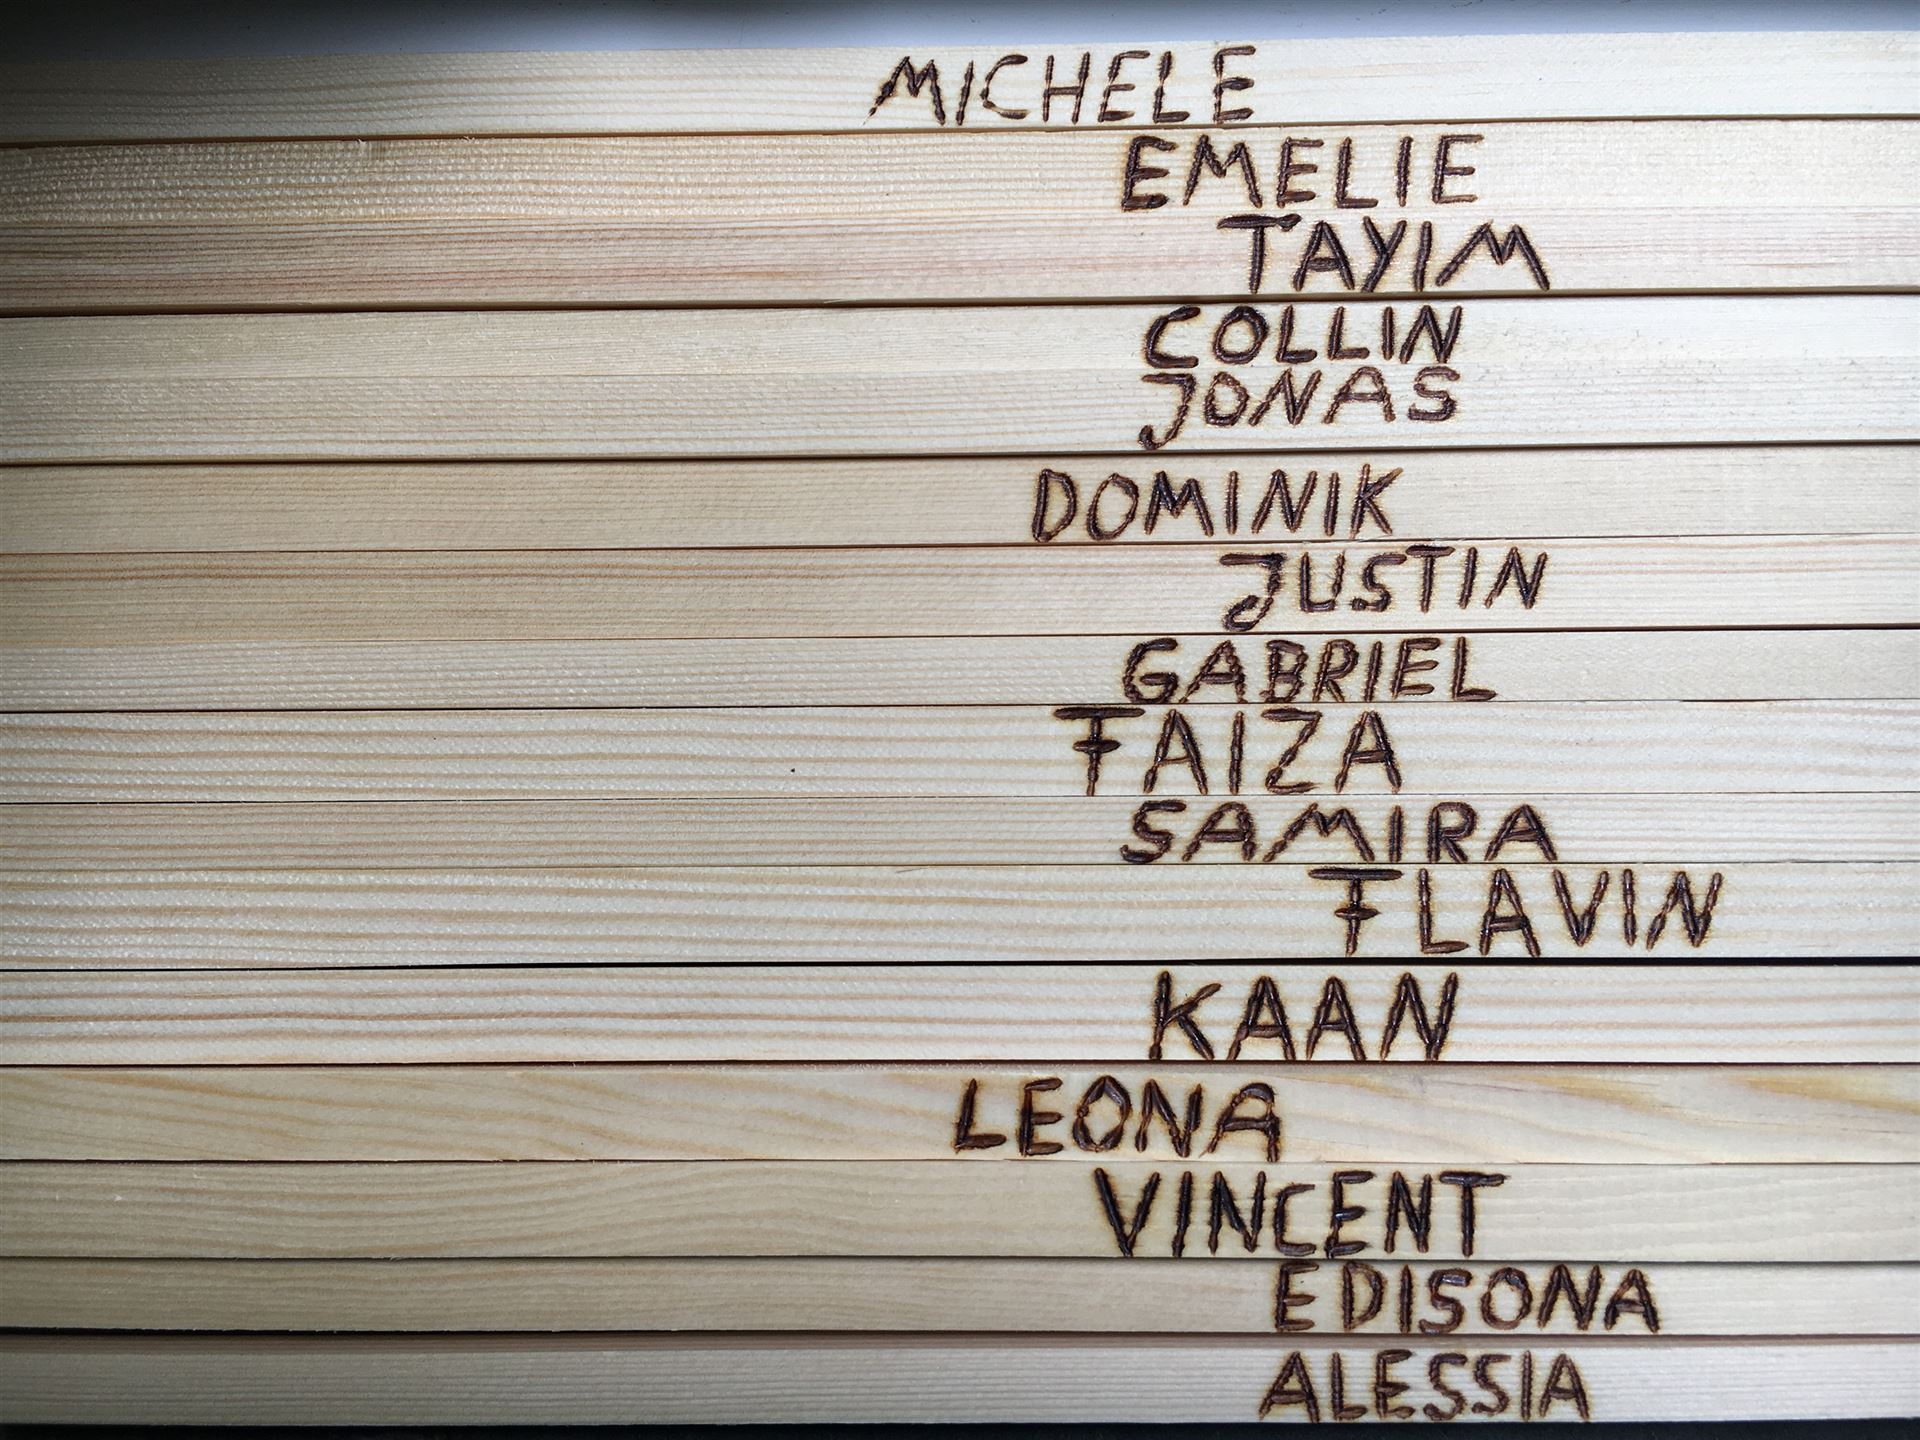 MICHELE
EMELIE
TAYIM
COLLIN
JONAS
DOMINIK
JUSTIN
GABRIEL
FAIZA
SAMIRA
FLAVIN
KAAN
LEONA
VINCENT
EDISONA
ALESSIA